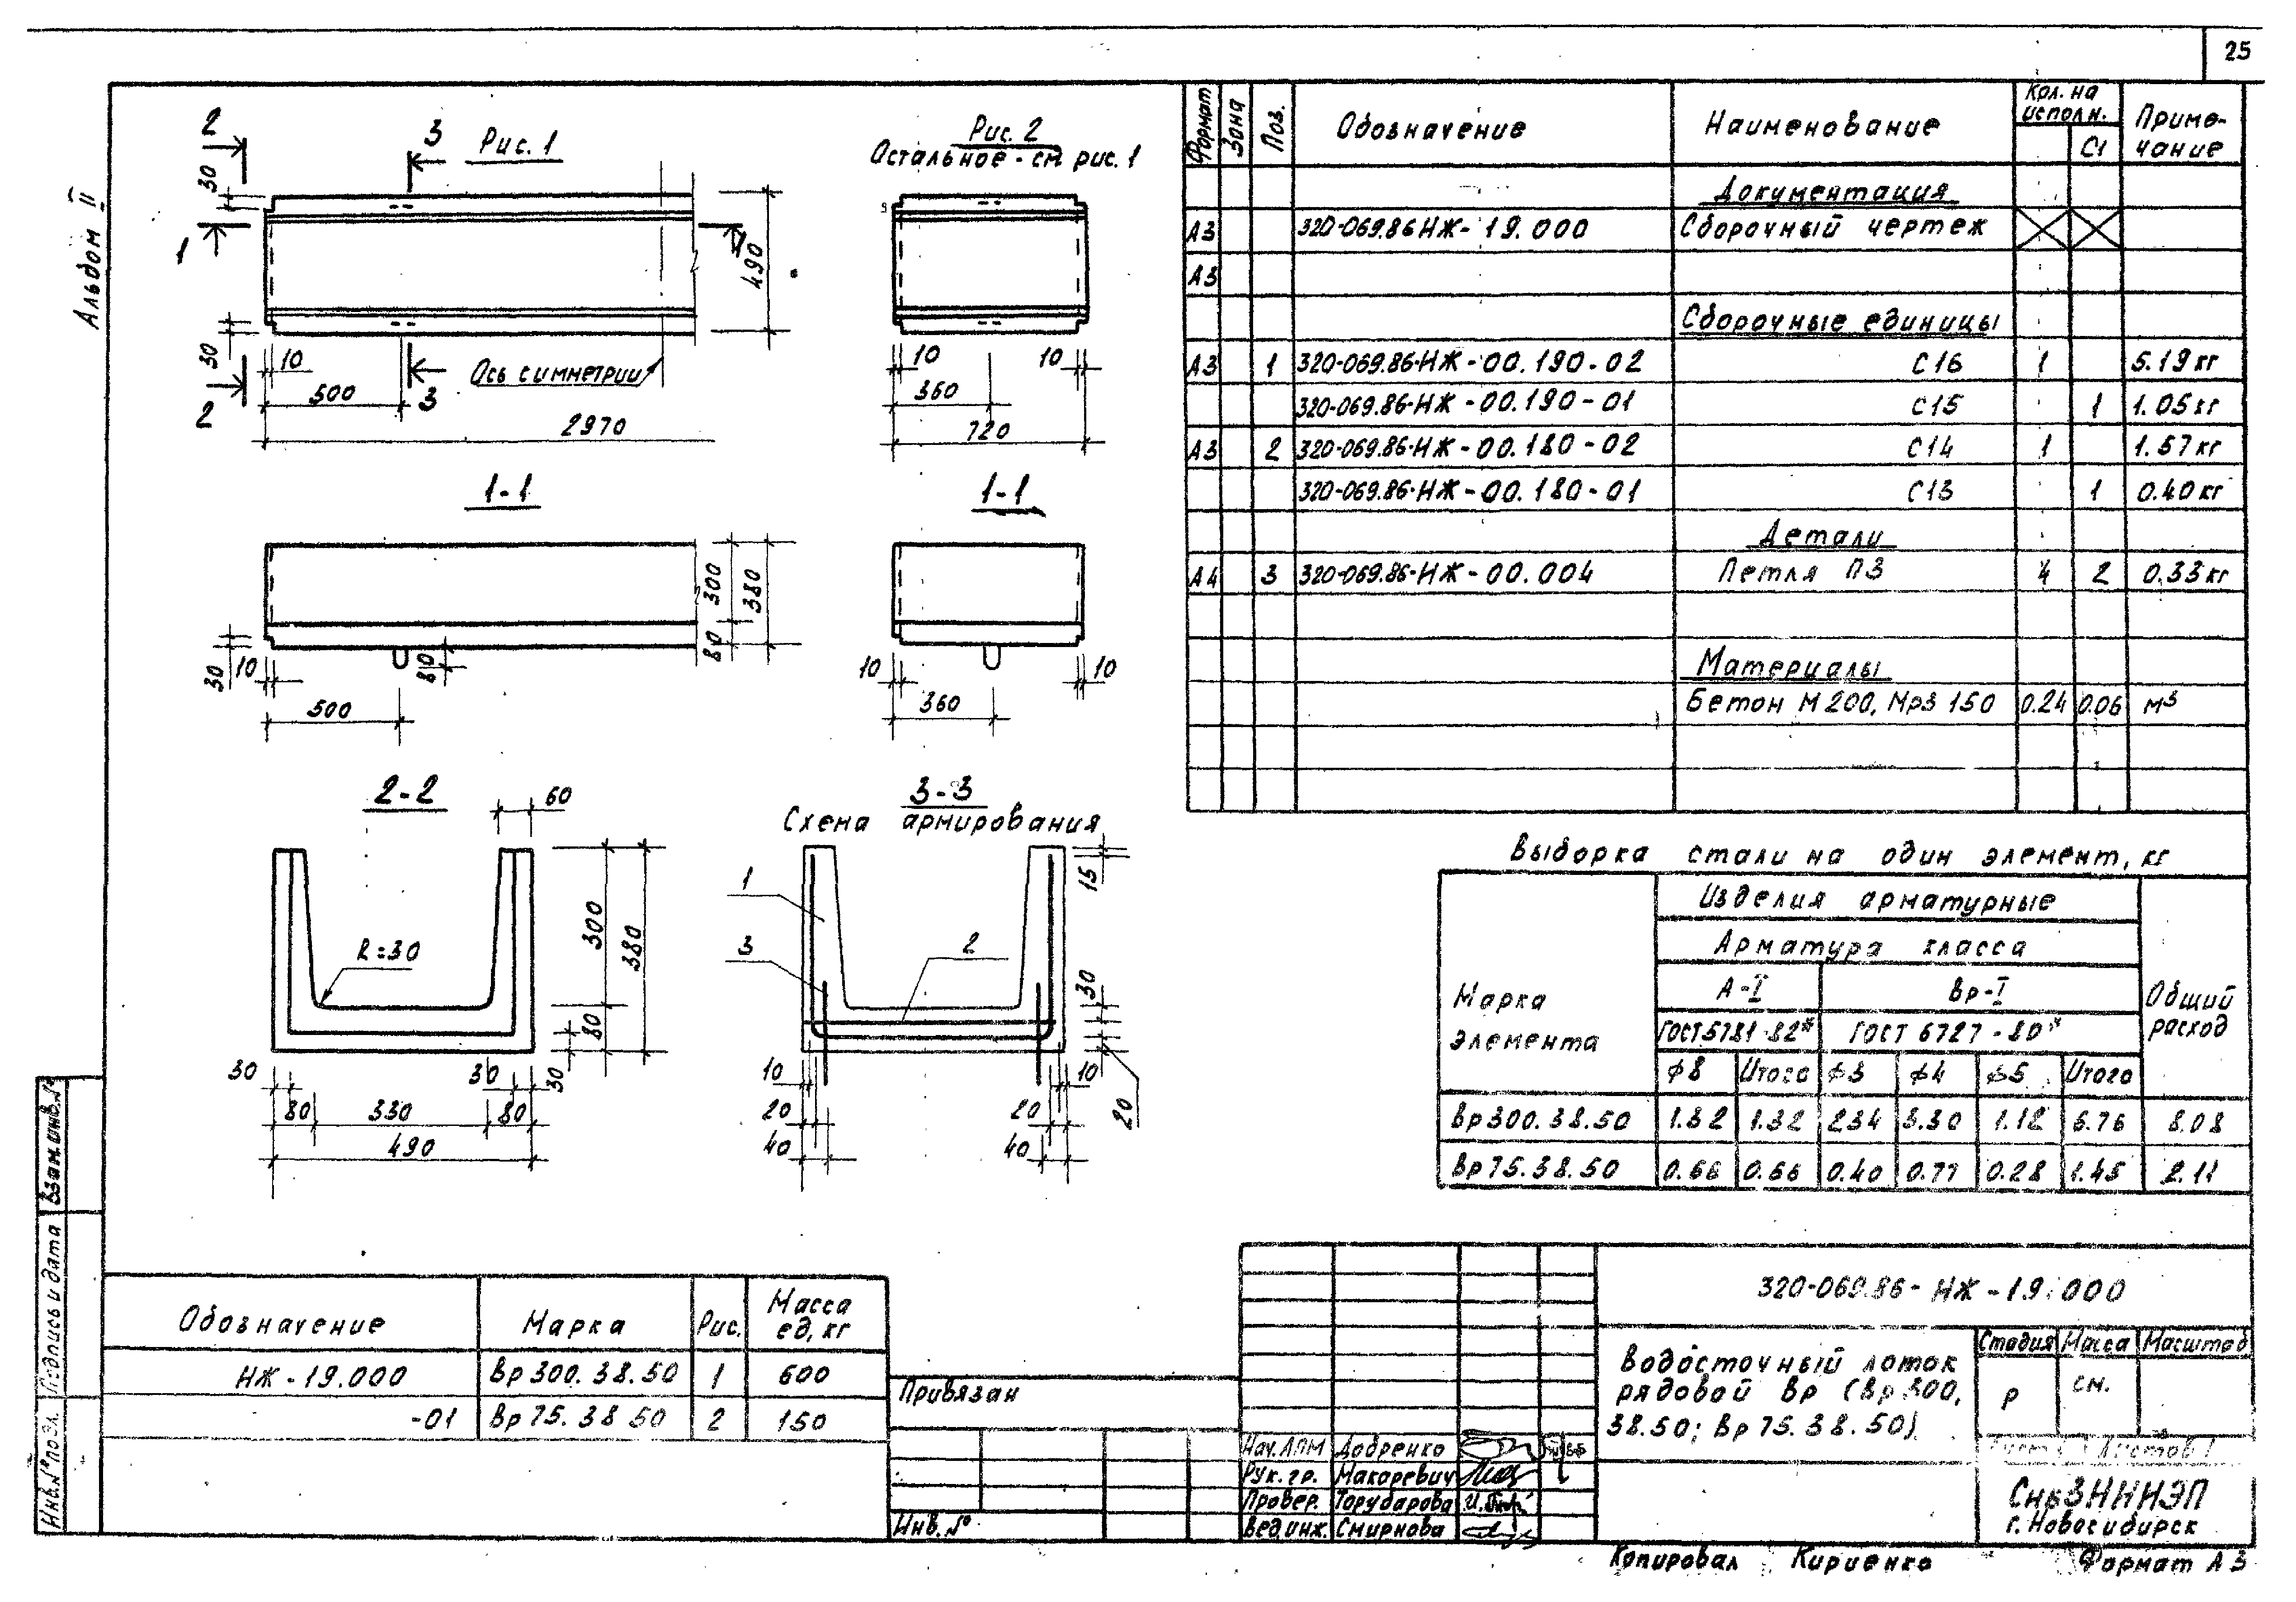 25
Альбом II
2
3
Рис. 1
30
1
1
490
30
10
Ось симметрии
2
500
3
2970
Рис. 2
Остальное - см рис. 1
10
10
360
720
1-1
300
380
80
30
10
80
500
1-1
10
10
360
2-2
60
R=30
300
380
80
30
30
30
80
330
80
490
3-3
Схема армирования
1
3
2
15
30
10
10
20
20
20
40
40
Формат
Зона
Поз.
Обозначение
Наименование
Кол. на исполн.
С1
Приме-
чание
Документация
А3 320-069.86 НЖ- 19.000 Сборочный чертеж
А3
Сборочные единицы
А3 1 320-069.86-НЖ-00.190-02 С16 1 5.19 кг
320-069.86-НЖ-00.190-01 С15 1 1.05 кг
А3 2 320-069.86-НЖ-00.180-02 С14 1 1.57 кг
320-069.86-НЖ-00.180-01 С13 1 0.40 кг
Детали
А4 3 320-069.86-НЖ-00.004 Петля П3 4 2 0.33 кг
Материалы
Бетон М200, Мрз 150 0.24 0.06 м3
Выборка стали на один элемент, кг
Марка
элемента
Изделия арматурные
Арматура класса
А-I
Вр-I
Общий
расход
ГОСТ 5781-82*
ГОСТ 6727-80*
ф8 Итого ф3 ф4 ф5 Итого
Вр300.38.50 1.32 1.32 2.34 3.30 1.12 6.76 8.08
Вр75.38.50 0.66 0.66 0.40 0.77 0.28 1.45 2.11
Обозначение
Марка
Рис.
Масса
ед, кг
НЖ-19.000 Вр300.38.50 1 600
-01 Вр75.38 50 2 150
Взам.инв.№
Подпись и дата
Инв.№подл.
Привязан
Инв.№
320-069.86- НЖ -19.000
Водосточный лоток
рядовой Вр (Вр 300.
38.50; Вр 75.38.50)
Стадия Масса Масштаб
Р
см.
Лист Листов 1
Нач.АПМ Добренко
Рук.гр. Макаревич
Провер. Торубарова
Вед.инж. Смирнова
СибЗНИИЭП
г. Новосибирск
Копировал Кириенко Формат А3